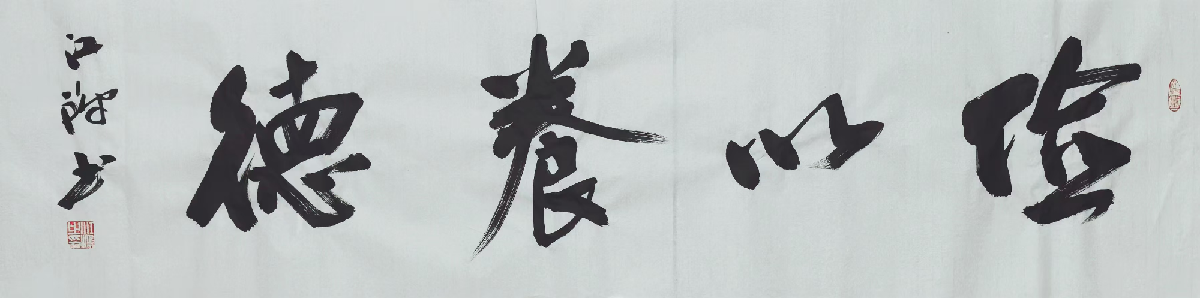 俭以养德
江隄书